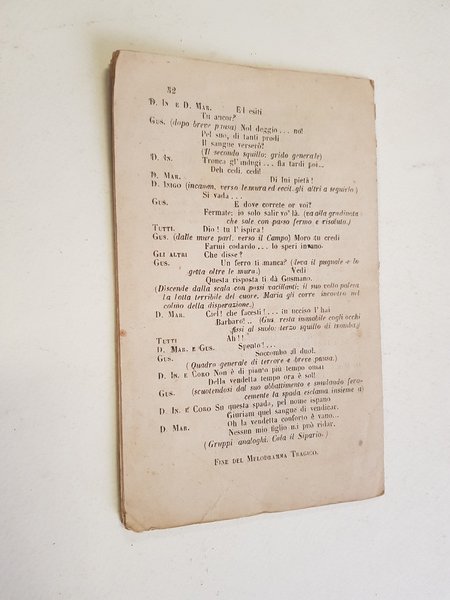 52
D. IN E D. MAR. Ed esiti
Tu ancor?
GUS. (dopo breve pausa) Nol deggio ... no!
Pel suo, di tanti prodi
Il sangue verserò!
(Il secondo squillo: grido generale)
D. IN. Tronca gl'indugi ... fia tardi poi..
Deh cedi, cedi!
D. MAR. Di lui pietà!
D. INIGO (incammin. verso le mura ed eccit. gli altri a seguirlo)
Si vada ...
GUS. E dove correte or voi?
Fermate: io solo salir vo' là. (va alla gradinata
che sale con passo fermo e risoluto.)
TUTTI. Dio! tu l'ispira!
GUS. (dalle mure part. verso il Campo) Moro tu credi
Farmi codardo... lo speri invano.
GLI ALTRI Che disse?
GUS. Un ferro ti manca? (leva il pugnale e lo
getta oltre le mura.) Vedi
Questa risposta ti dà Gusmano.
(Discende dalla scala con passi vacillanti: il suo volto palesa
la lotta terribile del cuore, Maria gli corre incontro nel
colmo della disperazione.)
D. MAR. Ciel! che facesti!... m' ucciso l' hai
Barbaro!.. (Gus. resta immobile cogli occhi
fissi al suolo: terzo squillo di tromba.)
TUTTI Ah!!
D. MAR. E GUS. Spento!...
GUS. Soccombo al duol.
(Quadro generale di terrore e breve pausa.)
D. IN. E CORO Non è di pianto più tempo omai
Della vendetta tempo ora è sol!
GUS. (scuotendosi dal suo abbattimento e snudando fero-
cemente la spada esclama insieme a)
D. IN. E CORO Su questa spada, pel nome ispano
Giuriam quel sangue di vendicar.
D. MAR. Oh la vendetta conforto è vano...
Nessun mio figlio mi può ridar.
(Gruppi analoghi. Cala il Sipario.)
FINE DEL MELODRAMMA TRAGICO.